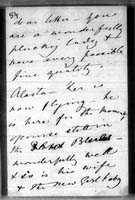 dear letter – You
are a wonderfully
plucky lady &
have every possible
fine quality.
Alastair Ier is
now flying he
is here for the moment
Spouse still in
the Blues
wonderfully well
& so is his wife
& the New Girl baby